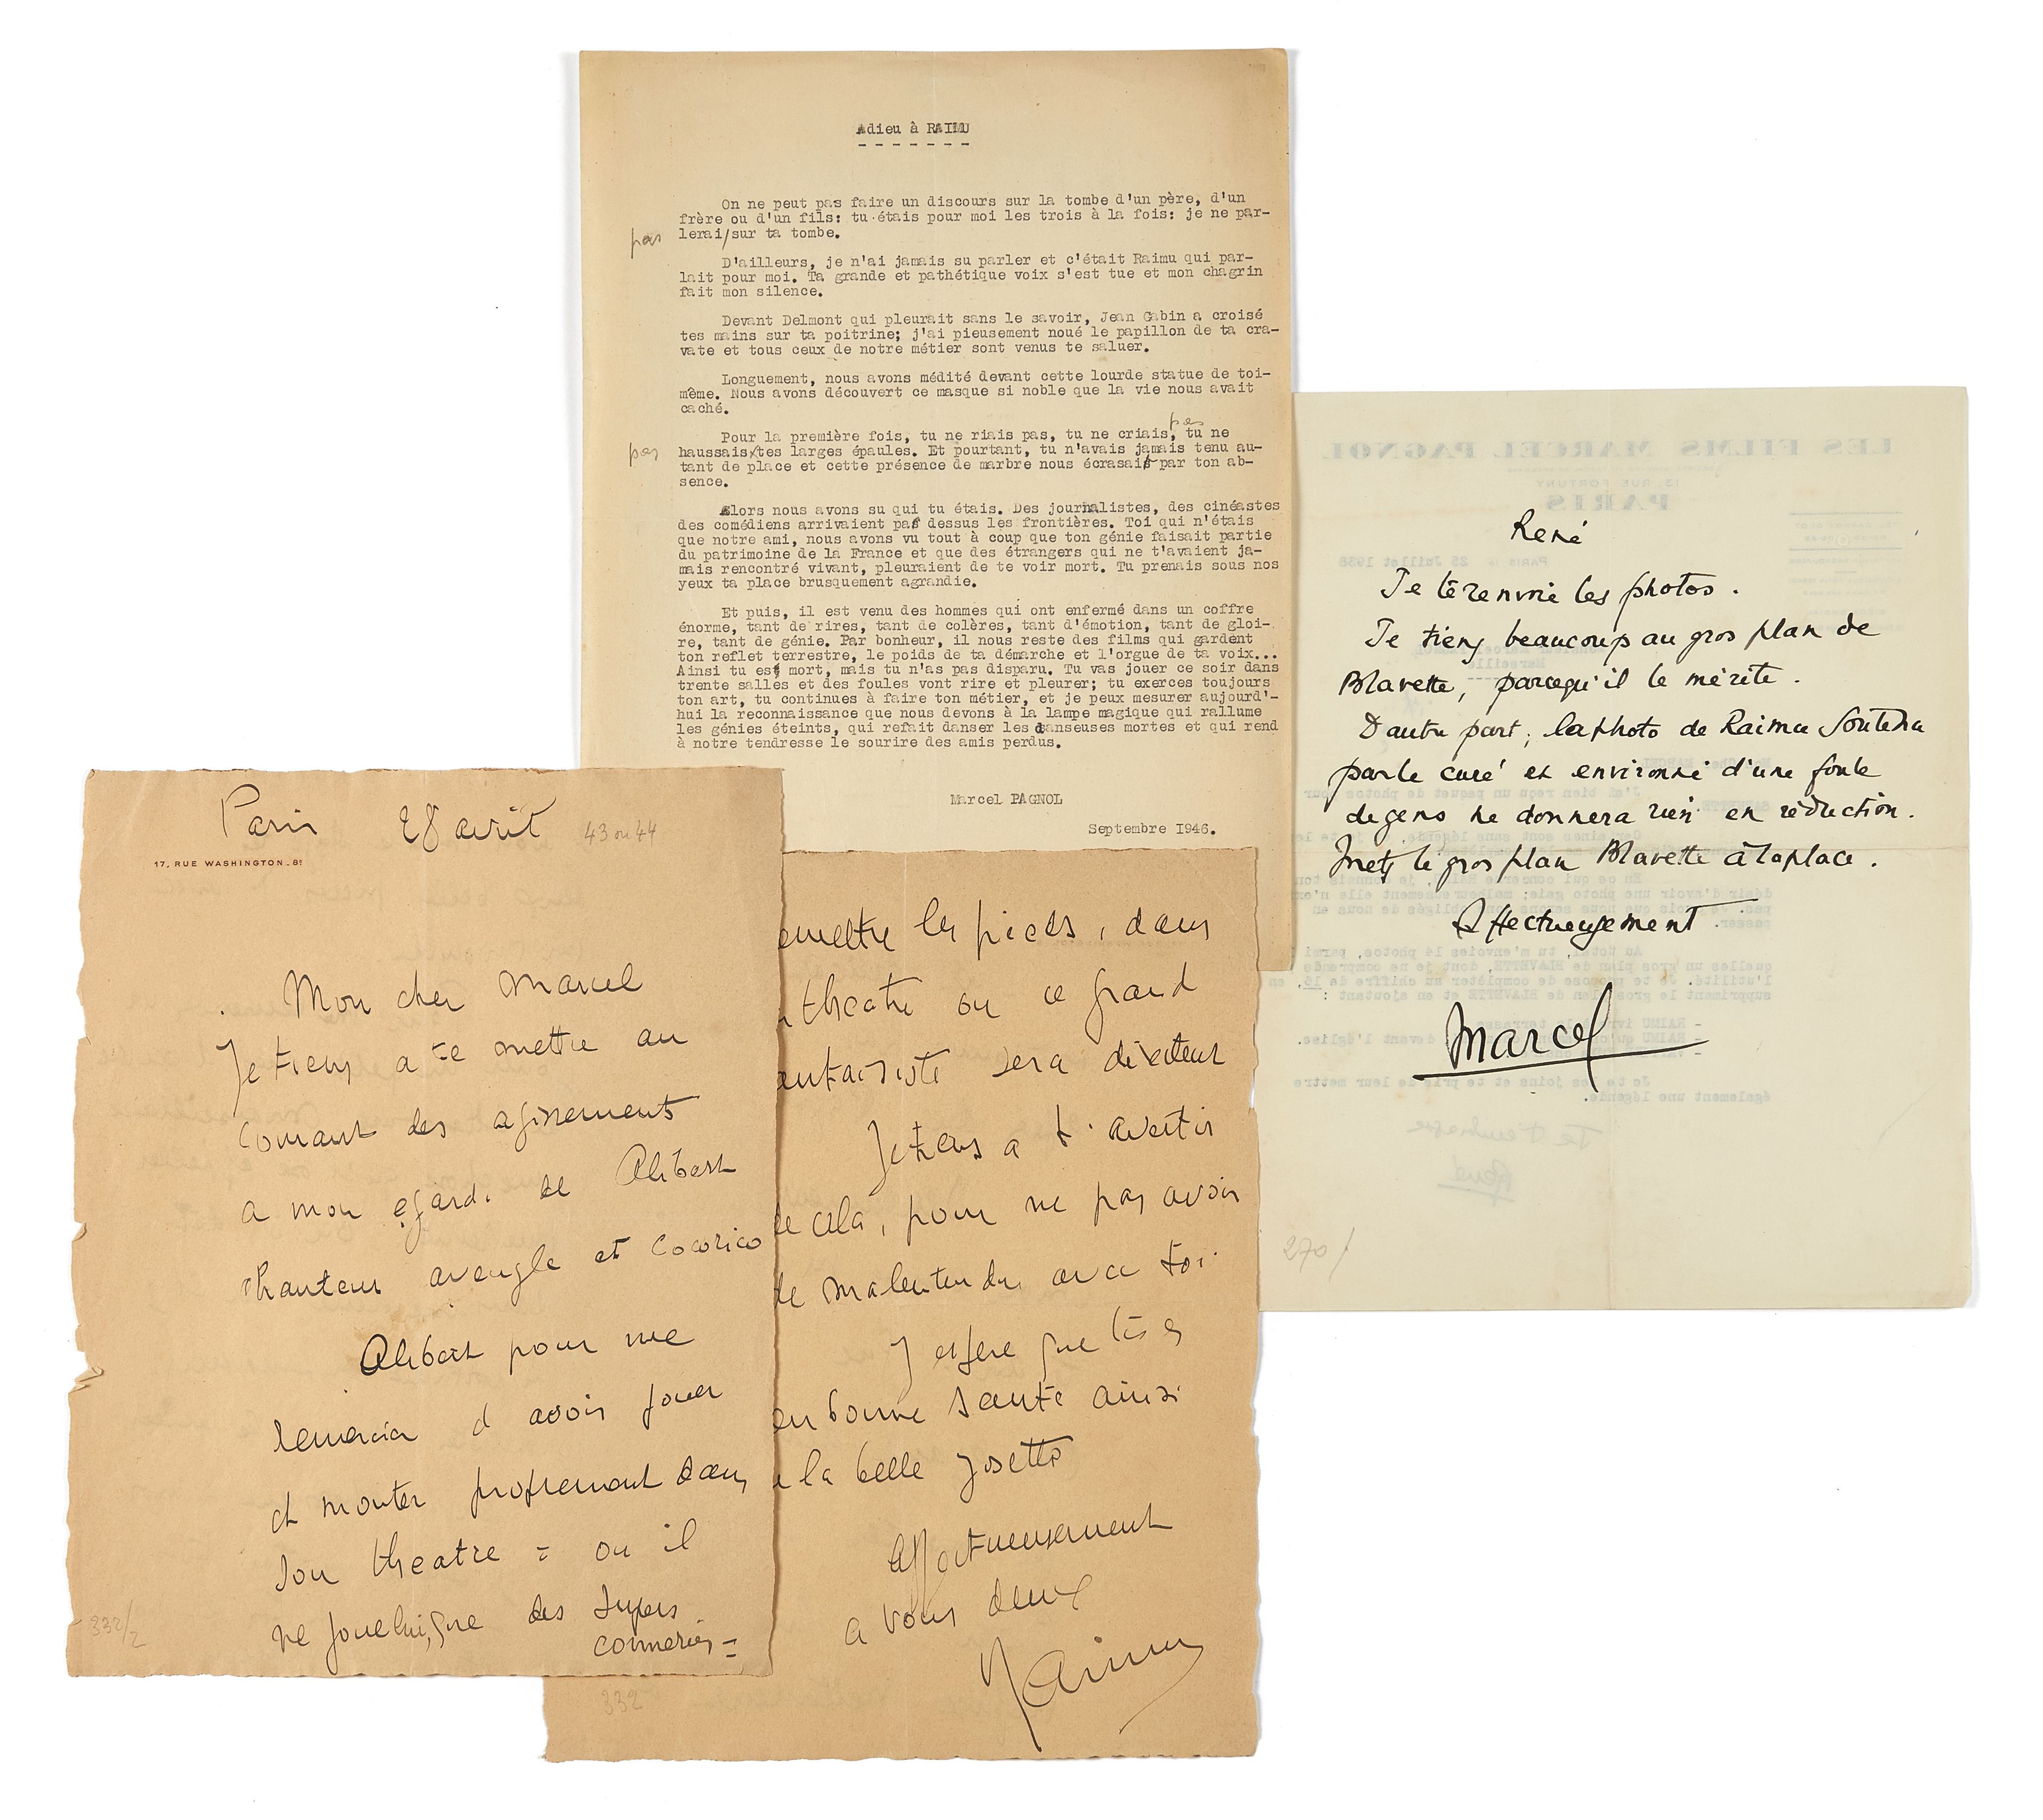 Adieu à RAIMU
- - - - - - -
On ne peut pas faire un discours sur la tombe d'un père, d'un
frère ou d'un fils: tu étais pour moi les trois à la fois: je ne par-
pas lerai/sur ta tombe.
D'ailleurs, je n'ai jamais su parler et c'était Raimu qui par-
lait pour moi. Ta grande et pathétique voix s'est tue et mon chagrin
fait mon silence.
Devant Delmont qui pleurait sans le savoir, Jean Gabin a croisé
tes mains sur ta poitrine; j'ai pieusement noué le papillon de ta cra-
vate et tous ceux de notre métier sont venus te saluer.
Longuement, nous avons médité devant cette lourde statue de toi-
même. Nous avons découvert ce masque si noble que la vie nous avait
caché.
pas
Pour la première fois, tu ne riais pas, tu ne criais, tu ne
pas haussais tes larges épaules. Et pourtant, tu n'avais jamais tenu au-
tant de place et cette présence de marbre nous écrasait par ton ab-
sence.
Alors nous avons su qui tu étais. Des journalistes, des cinéastes
des comédiens arrivaient par dessus les frontières. Toi qui n'étais
que notre ami, nous avons vu tout à coup que ton génie faisait partie
du patrimoine de la France et que des étrangers qui ne t'avaient ja-
mais rencontré vivant, pleuraient de te voir mort. Tu prenais sous nos
yeux ta place brusquement agrandie.
Et puis, il est venu des hommes qui ont enfermé dans un coffre
énorme, tant de rires, tant de colères, tant d'émotion, tant de gloi-
re, tant de génie. Par bonheur, il nous reste des films qui gardent
ton reflet terrestre, le poids de ta démarche et l'orgue de ta voix...
Ainsi tu es mort, mais tu n'as pas disparu. Tu vas jouer ce soir dans
trente salles et des foules vont rire et pleurer; tu exerces toujours
ton art, tu continues à faire ton métier, et je peux mesurer aujourd'-
hui la reconnaissance que nous devons à la lampe magique qui rallume
les génies éteints, qui refait danser les danseuses mortes et qui rend
à notre tendresse le sourire des amis perdus.
Marcel PAGNOL
Septembre 1946.
Paris 28 avril 43 ou 44
17, RUE WASHINGTON. 8e
Mon cher Marcel
Je tiens a te mettre au
courant des agissements
a mon egard. de Alibert
chanteur aveugle et Cocorico
Alibert pour me
remercier d avoir jouer
et monter proprement dans
son theatre = ou il
ne joue lui, que des supers
conneries =
332/2
emettre les pieds, dans
theatre ou ce grand
antaisiste sera directeur
Je tiens a t'avertir
de cela, pour ne pas avoir
de malentendu avec toi
J espere que tu es
en bonne sante ainsi
la belle Josette
Affectueusement
a vous deux
Raimu
332
LES FILMS MARCEL PAGNOL
13, RUE FORTUNY
PARIS
PARIS LE 25 Juillet 1938
René
Je te renvoie les photos.
Je tiens beaucoup au gros plan de
Blavette, parcequ'il le mérite.
D'autre part, la photo de Raimu soutenu
par le curé et environné d'une foule
de gens ne donnera rien en réduction.
Mets le gros plan Blavette à la place.
Affectueusement
Marcel
Je t'embrasse
René
270/